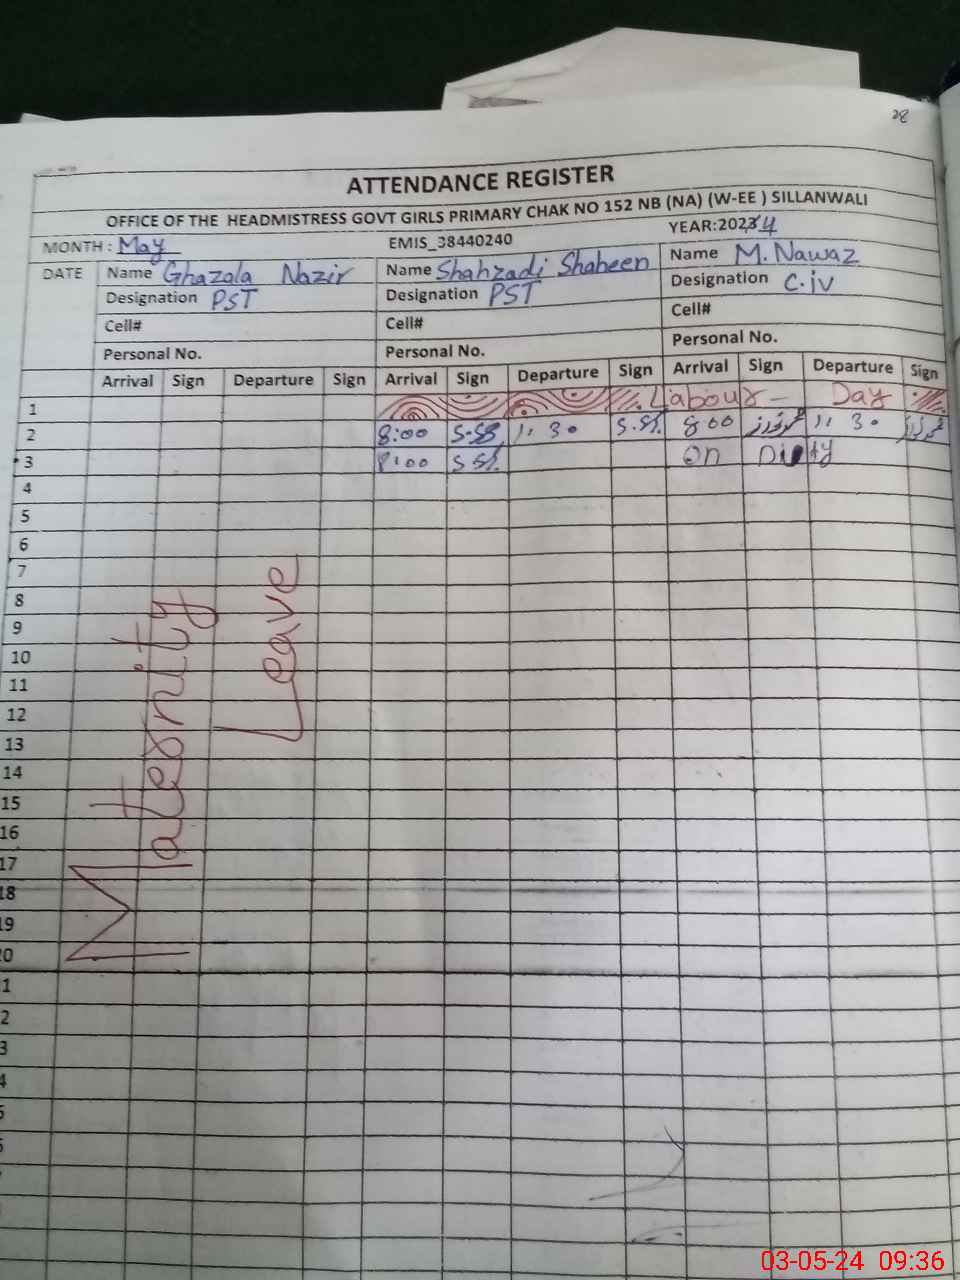 28
ATTENDANCE REGISTER
OFFICE OF THE HEADMISTRESS GOVT GIRLS PRIMARY CHAK NO 152 NB (NA) (W-EE ) SILLANWALI
MONTH : May EMIS_38440240 YEAR:2024
DATE Name Ghazala Nazir Name Shahzadi Shaheen Name M. Nawaz
Designation PST Designation PST Designation C.iv
Cell# Cell# Cell#
Personal No. Personal No. Personal No.
Arrival Sign Departure Sign Arrival Sign Departure Sign Arrival Sign Departure Sign
1 Labour - Day
2 8:00 11:30 8:00 11:30
3 8:00 on Duty
4
5
6
7
8
9
10
11
12
13
14
15
16
17
18
19
20
1
2
3
4
5
6
Maternity
Leave
03-05-24 09:36